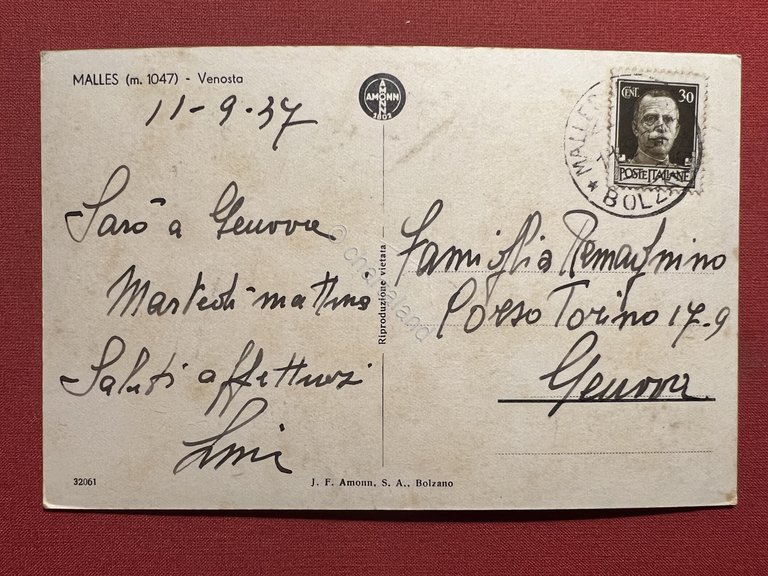 MALLES (m. 1047) - Venosta
AMONN
1802
CENT. 30
POSTE ITALIANE
MALLES
BOLZ
11-9-37
Sarò a Genova
Martedì mattina
Saluti affettuosi
Famiglia Remaghino
Corso Torino 17.9
Genova
Riproduzione vietata
32061
J. F. Amonn, S. A., Bolzano